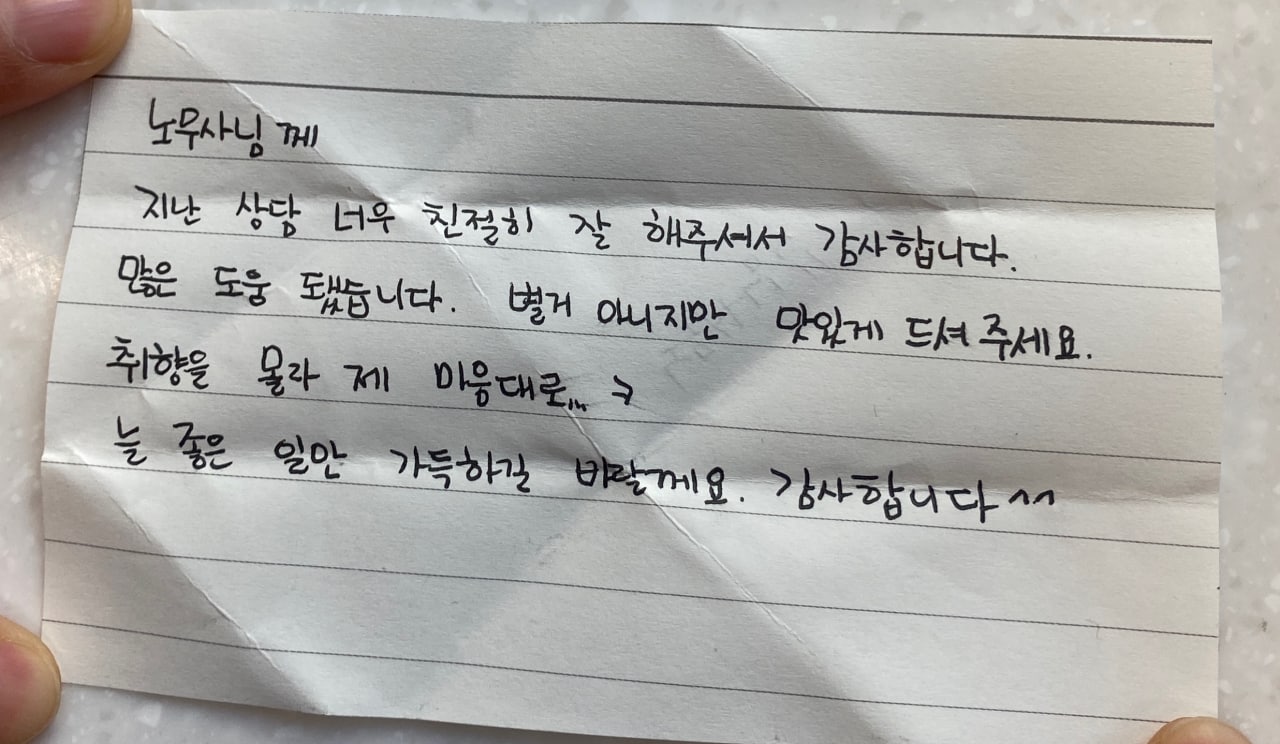 노무사님 께
지난 상담 너무 친절히 잘 해주셔서 감사합니다.
많은 도움 됐습니다. 별거 아니지만 맛있게 드셔 주세요.
취향을 몰라 제 마음대로... ㅋ
늘 좋은 일만 가득하길 바랄께요. 감사합니다 ^^